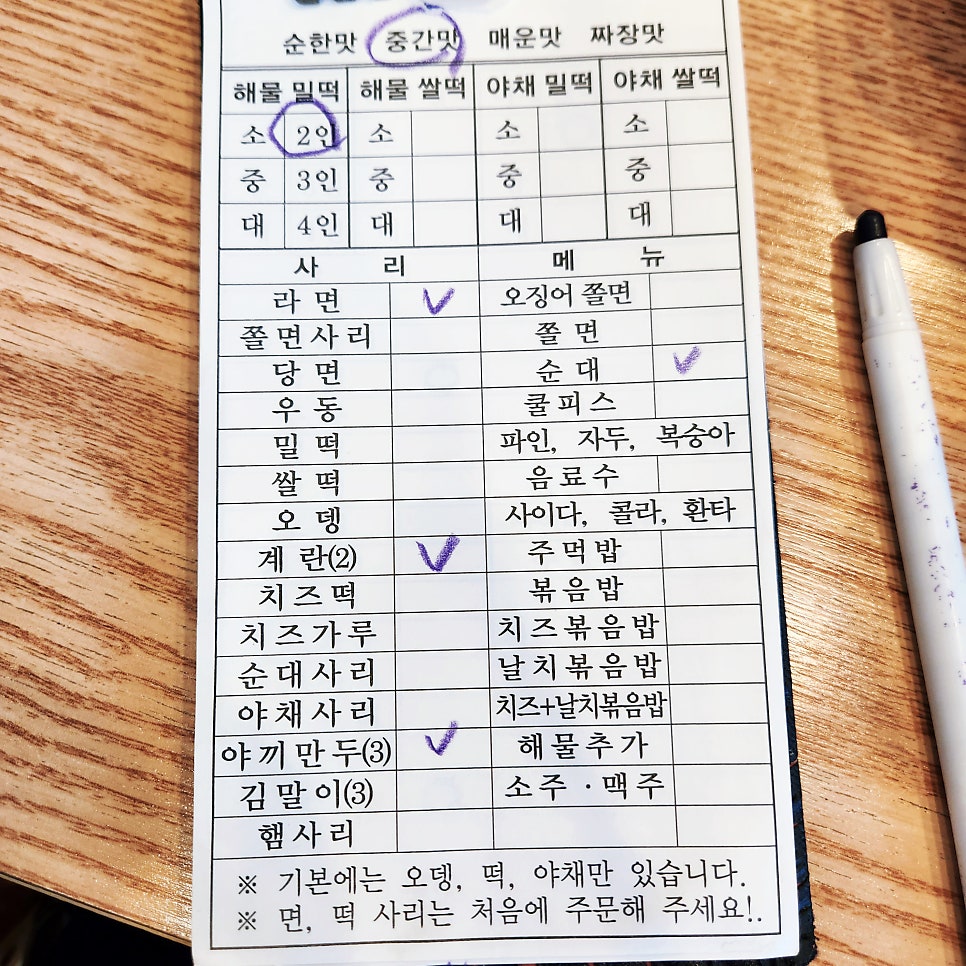 순한맛 중간맛 매운맛 짜장맛
해물 밀떡 해물 쌀떡 야채 밀떡 야채 쌀떡
소 2인 소 소 소
중 3인 중 중 중
대 4인 대 대 대
사 리 메 뉴
라 면 오징어 쫄면
쫄면사리 쫄 면
당 면 순 대
우 동 쿨피스
밀 떡 파인, 자두, 복숭아
쌀 떡 음료수
오 뎅 사이다, 콜라, 환타
계 란(2) 주먹밥
치즈떡 볶음밥
치즈가루 치즈볶음밥
순대사리 날치볶음밥
야채사리 치즈+날치볶음밥
야끼만두(3) 해물추가
김말이(3) 소주 · 맥주
햄사리
※ 기본에는 오뎅, 떡, 야채만 있습니다.
※ 면, 떡 사리는 처음에 주문해 주세요!.